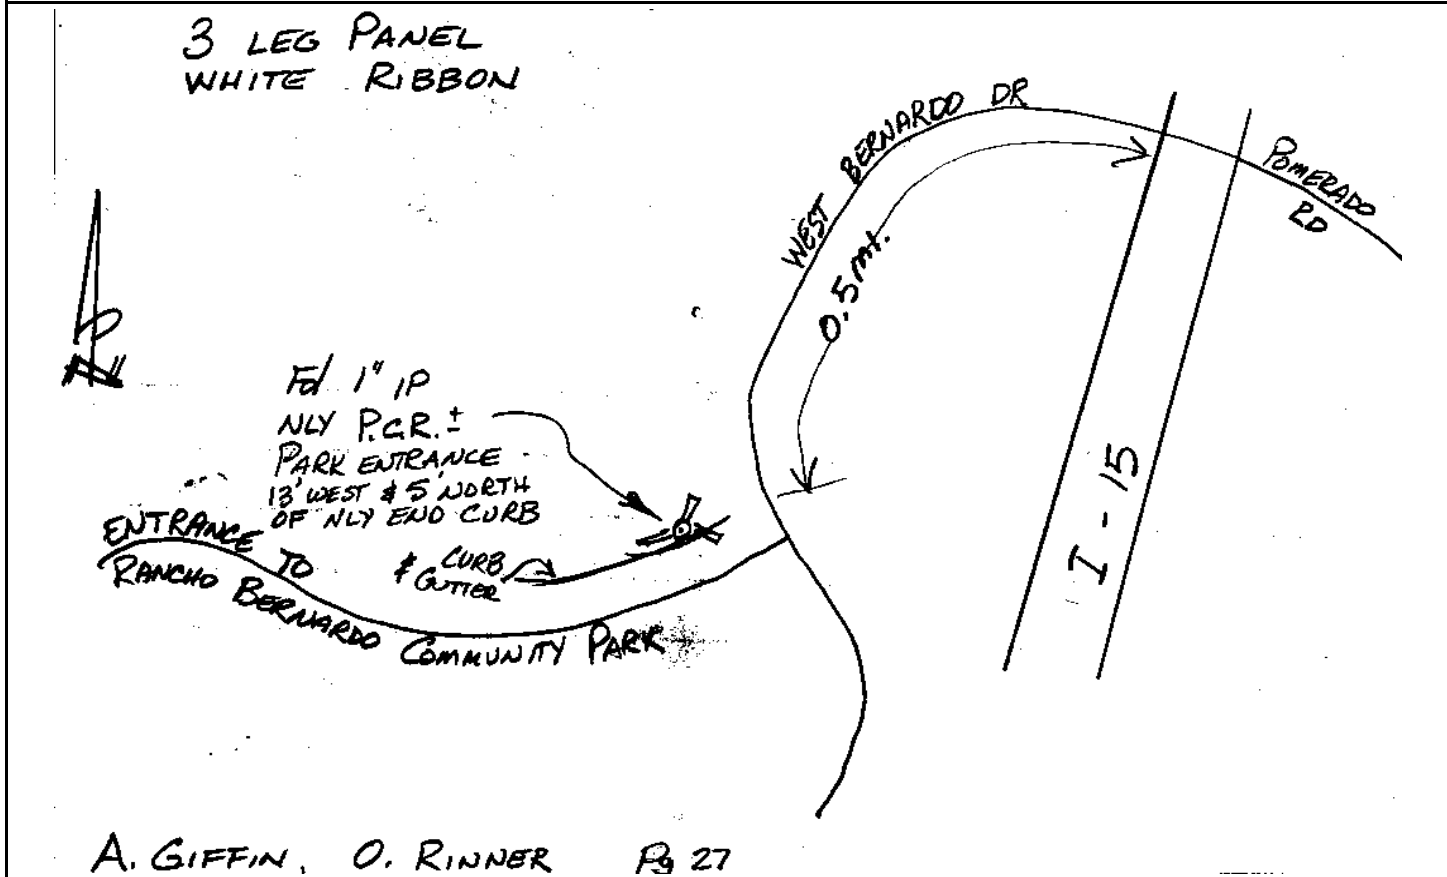 3 LEG PANEL
WHITE RIBBON
WEST BERNARDO DR
POMERADO
RD
0.5 mi.
Fd 1" IP
NLY P.C.R. ±
PARK ENTRANCE
13' WEST & 5' NORTH
OF NLY END CURB
CURB
& GUTTER
ENTRANCE TO
RANCHO BERNARDO COMMUNITY PARK
I-15
N
A. GIFFIN, O. RINNER Pg 27